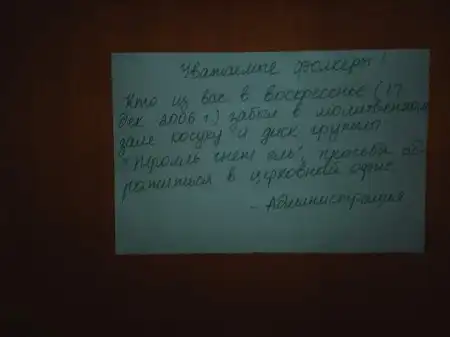 Уважаемые фолкеры!
Кто из вас в воскресенье (17
дек 2006 г.) забыл в молитвенном
зале косуху и диск группы
"Тролль гнет ель", просьба об-
ратиться в церковный офис
- Администрация